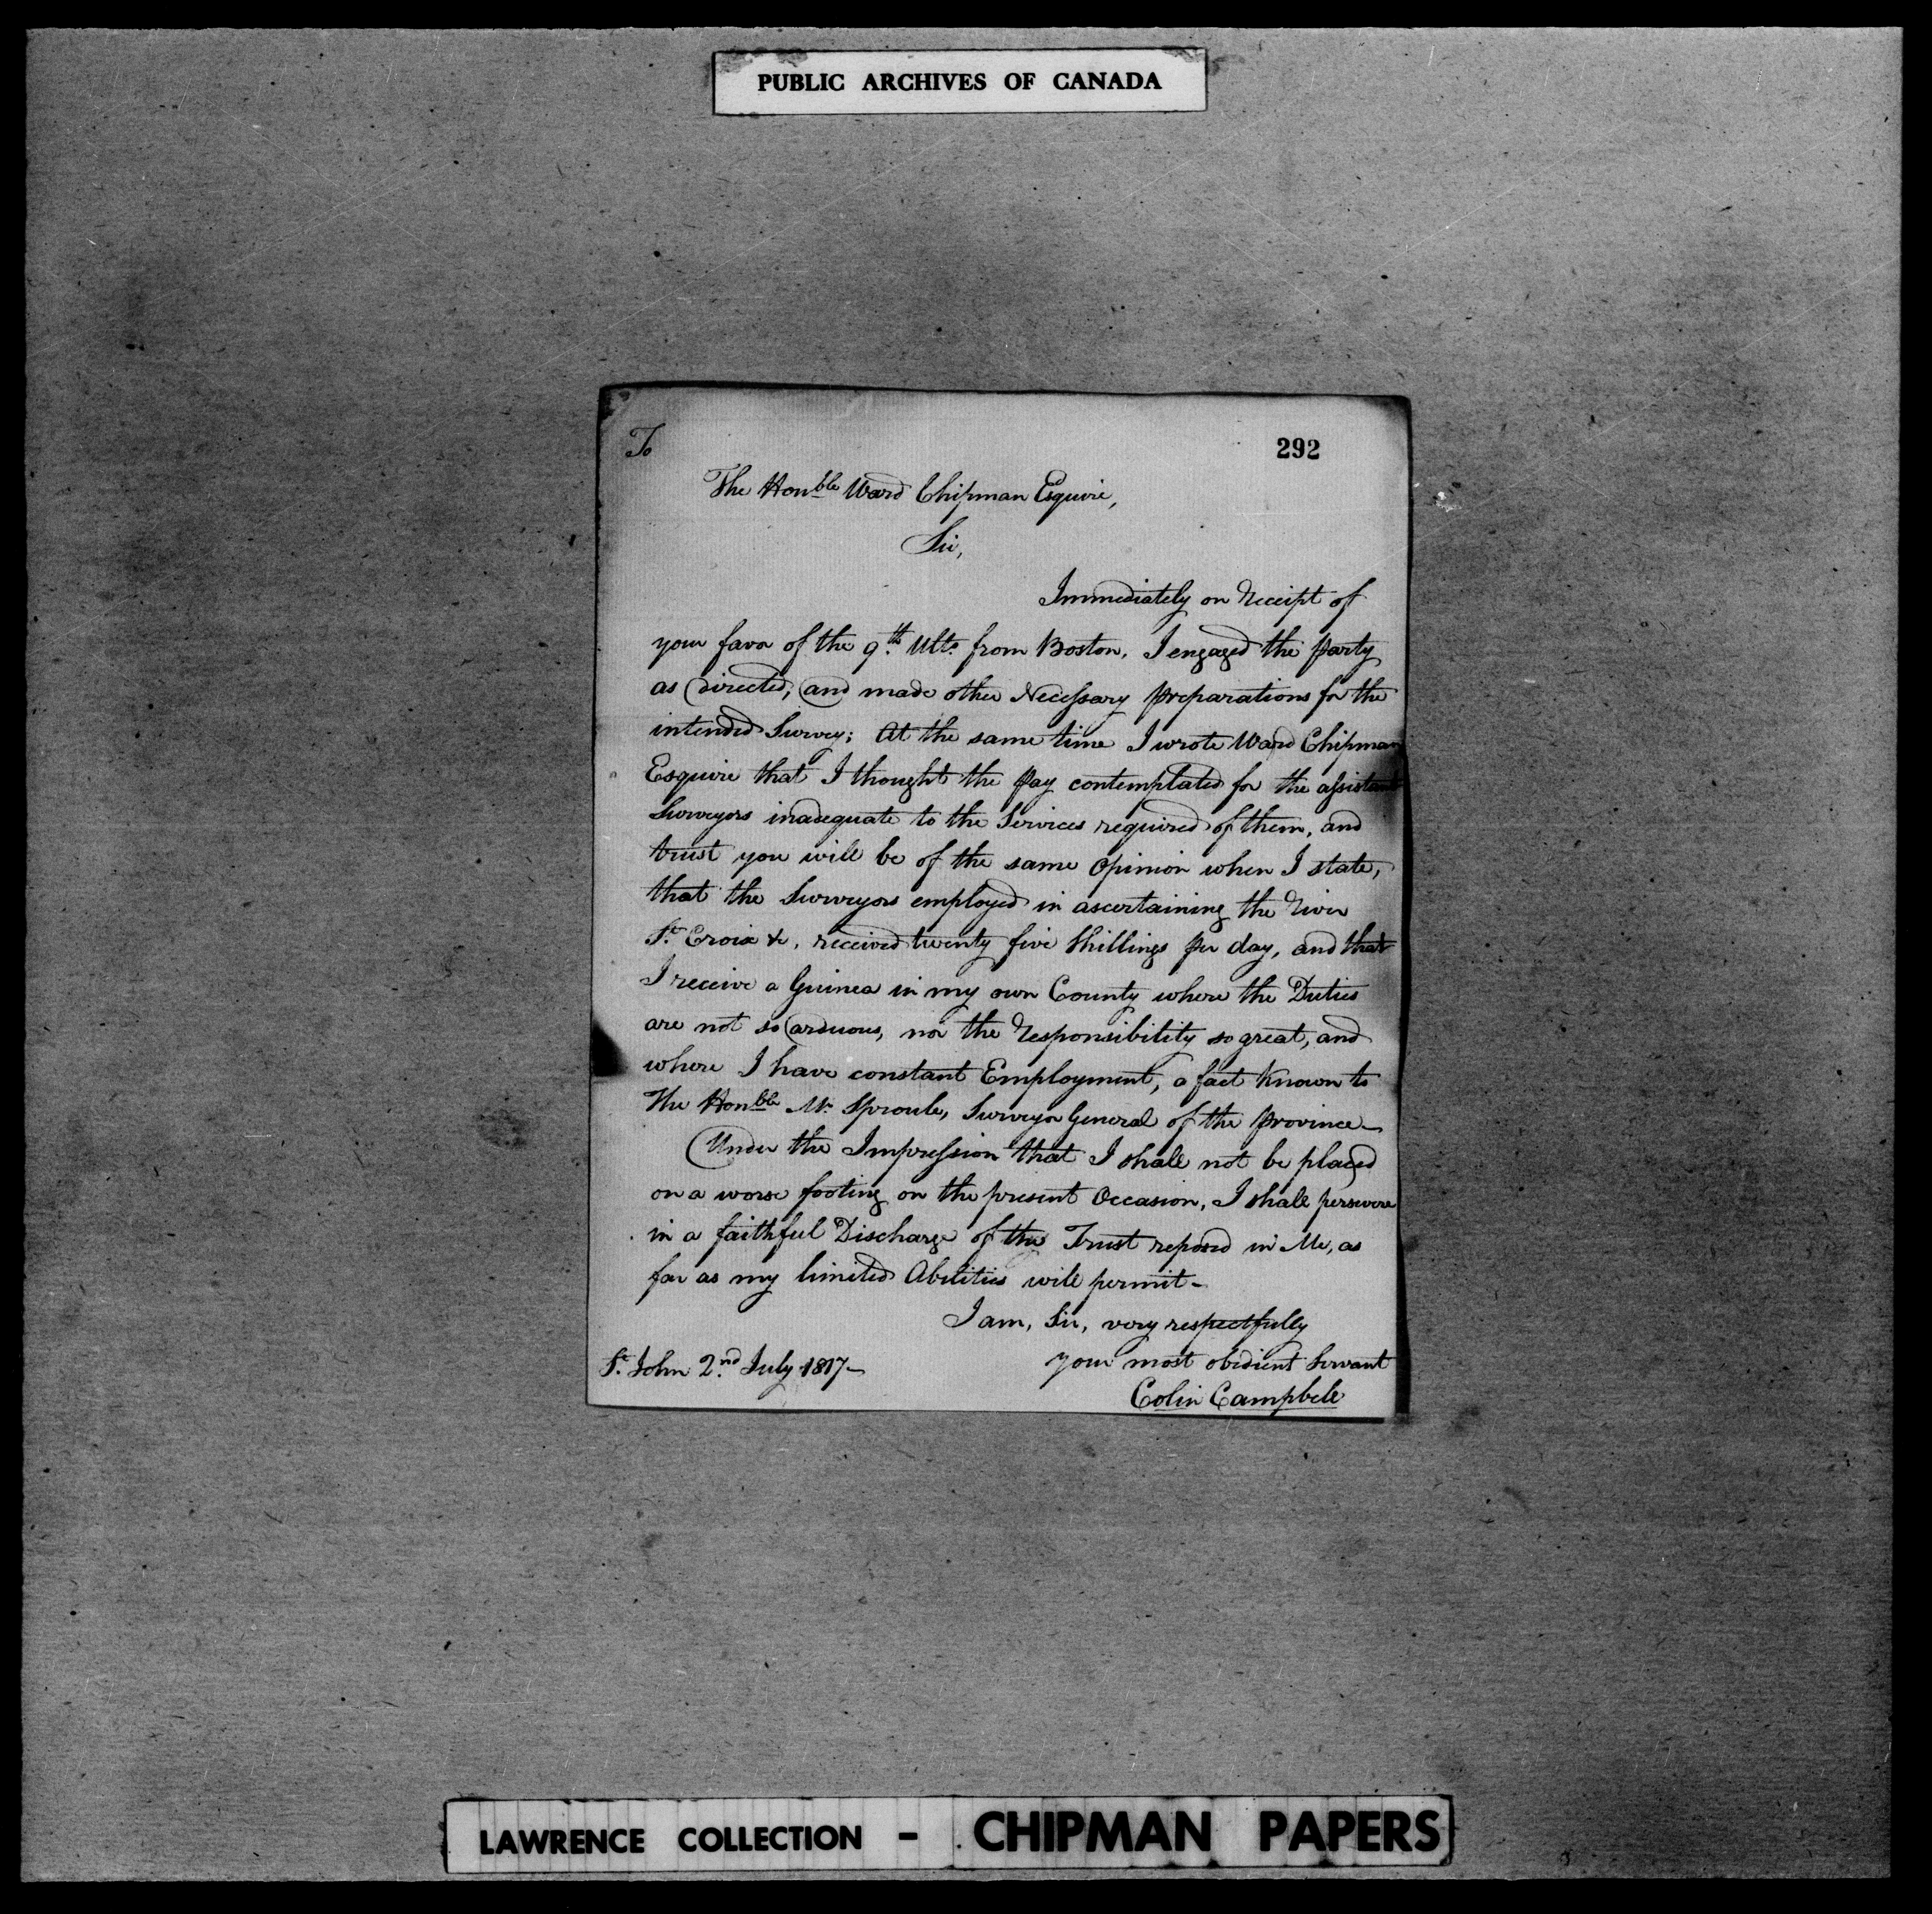 PUBLIC ARCHIVES OF CANADA
To
292
The Honble Ward Chipman Esquire,
Sir,
Immediately on Receipt of
your favor of the 9th Ulto from Boston, I engaged the party
as directed, and made other Necessary preparations for the
intended Survey; At the same time I wrote Ward Chipman
Esquire that I thought the pay contemplated for the assistant
Surveyors inadequate to the Services required of them, and
trust you will be of the same Opinion when I state,
that the Surveyors employed in ascertaining the River
St Croix &c, received twenty five Shillings per day, and that
I receive a Guinea in my own County where the Duties
are not so arduous, nor the Responsibility so great, and
where I have constant Employment, a fact known to
The Honble Mr Sproule, Surveyor General of the province—
Under the Impression that I shall not be placed
on a worse footing on the present Occasion, I shall persevere
in a faithful Discharge of the Trust reposed in Me, as
far as my limited Abilities will permit—
I am, Sir, very respectfully
your most obedient Servant
St John 2nd July 1817—
Colin Campbell
LAWRENCE COLLECTION - CHIPMAN PAPERS